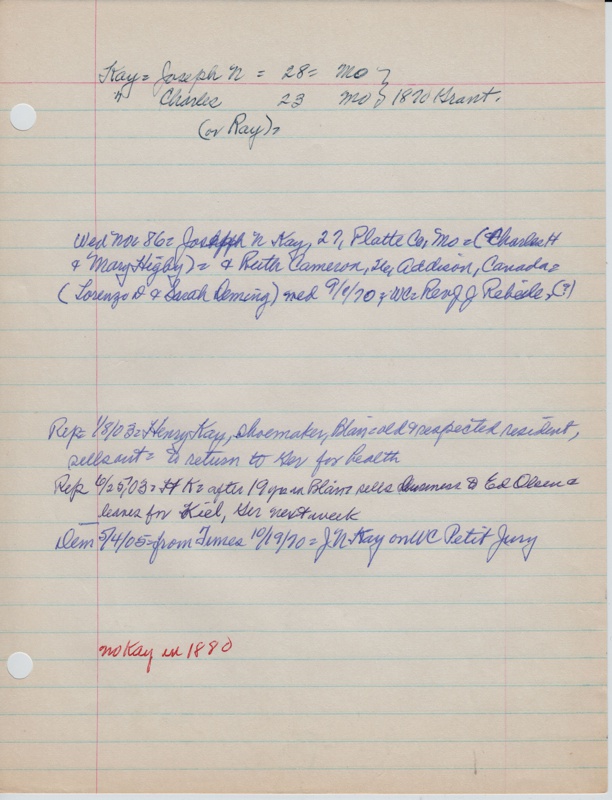 Kay = Joseph N = 28 = Mo }
" Charles 23 Mo } 1870 Grant.
(or Ray) =
Wed Nov 86 = Joseph N Kay, 27, Platte Co, Mo = (Charles H
& Mary Higby) = & Ruth Cameron, 26, Addison, Canada =
(Lorenzo D & Sarah Deming) med 9/ /70 WC = Rev J J (?)
Rep = 1/8/03 = Henry Kay, shoemaker, Blair = old & respected resident,
sells out = to return to Ger for health
Rep = 6/25/03 = H K = after 19 yrs in Blair sells business to Ed Olsen &
leaves for Kiel, Ger next week
Dem 5/4/05 = from Times 10/19/70 = J N Kay on WC Petit Jury
no Kay in 1880